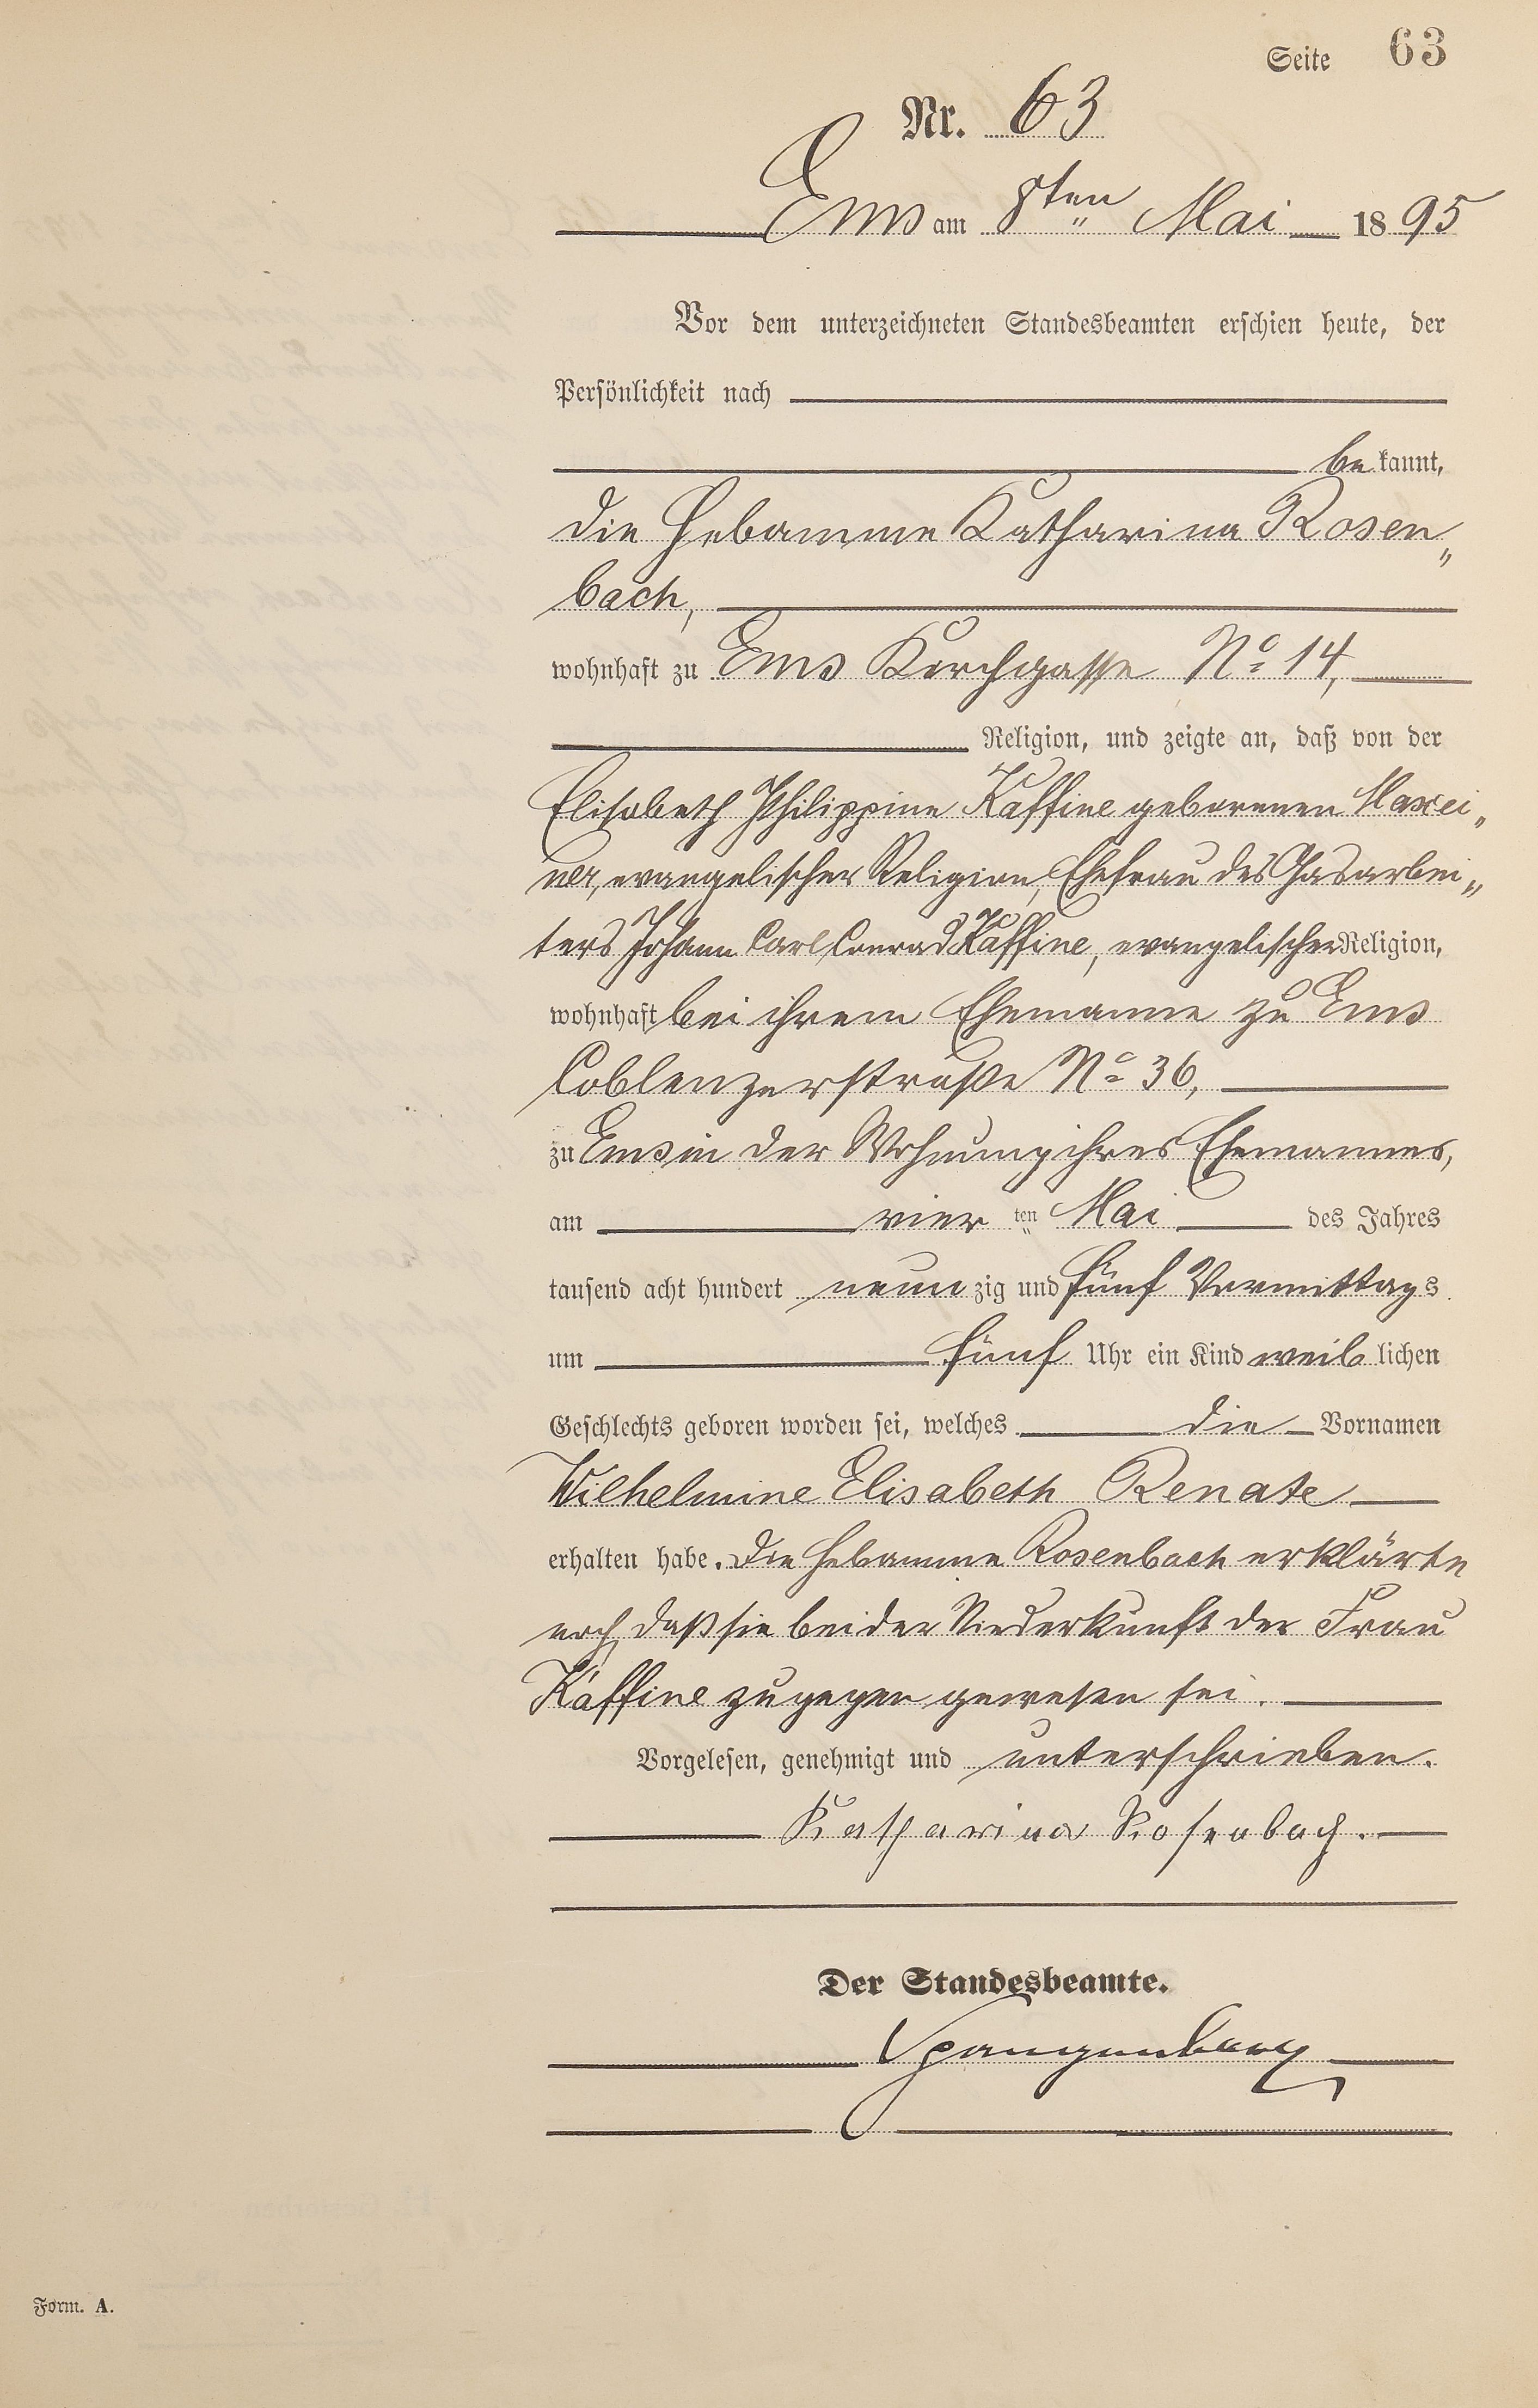 Seite 63
Nr. 63
Ems am 8ten Mai 1895
Vor dem unterzeichneten Standesbeamten erschien heute, der
Persönlichkeit nach
bekannt,
die Hebamme Katharina Rosen„
bach,
wohnhaft zu Ems Kirchgasse No 14,
Religion, und zeigte an, daß von der
Elisabeth Philippine Kaffine geborenen Maxei„
ner, evangelischer Religion, Ehefrau des Gasarbei„
ters Johann Carl Conrad Kaffine, evangelischer Religion,
wohnhaft bei ihrem Ehemanne zu Ems
Coblenzerstraße No 36,
zu Ems in der Wohnung ihres Ehemannes,
am vier ten Mai des Jahres
tausend acht hundert neun zig und fünf Vormittags
um fünf Uhr ein Kind weiblichen
Geschlechts geboren worden sei, welches die Vornamen
Wilhelmine Elisabeth Renate
erhalten habe. Die Hebamme Rosenbach erklärte
noch, daß sie bei der Niederkunft der Frau
Kaffine zugegen gewesen sei.
Vorgelesen, genehmigt und unterschrieben.
Katharina Rosenbach.
Der Standesbeamte.
Spangenberg
Form. A.